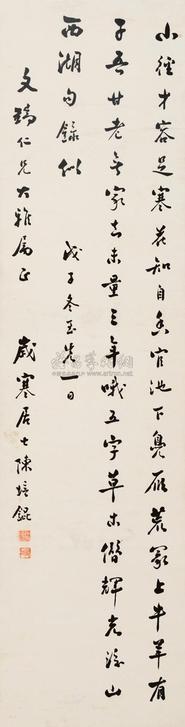 小徑才容足寒花知自香官池下鳧雁荒冢上牛羊有
子吾甘老無家去未量三年哦五字草木借輝光後山
西湖句錄似 戊子冬至先一日
文 仁兄大雅屬正 歲寒居士陳培錕